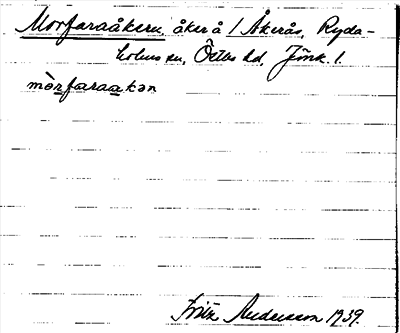 Morfaraåkern, åker å 1 Åkerås, Ryda-
holms sn, Östbo hd, Jönk. l.
mòrfaraakən
Fritz Andersson 1939.